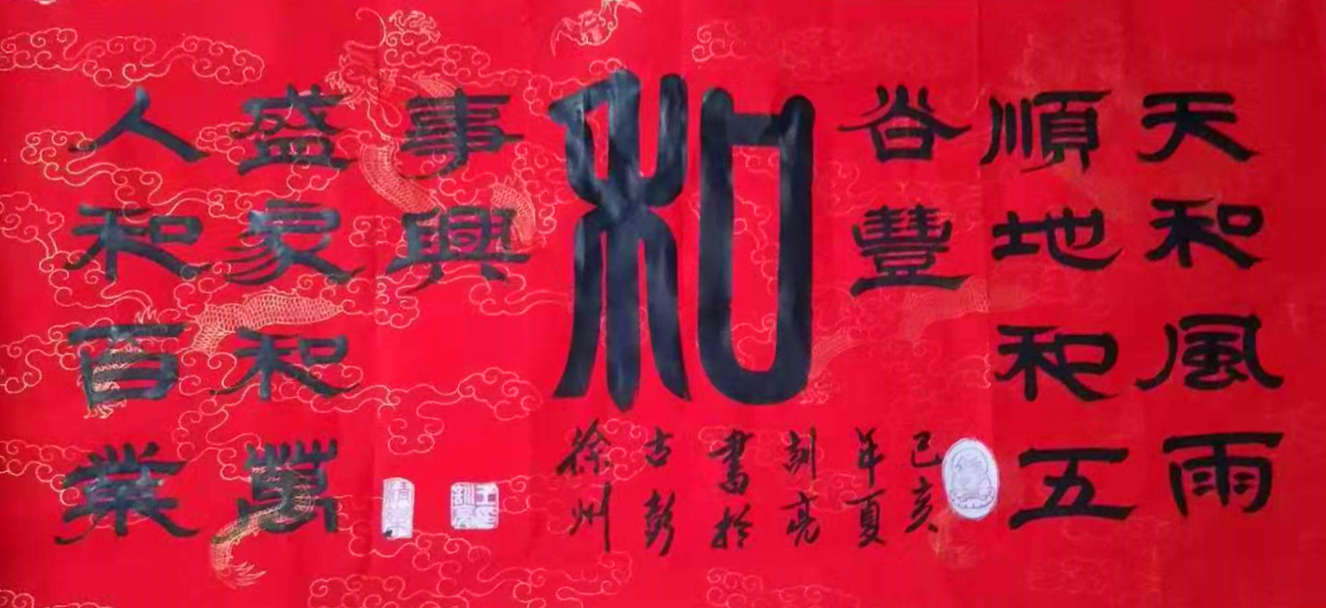 天和風雨
順地和五
谷豐
和
事興
盛家和萬
人和百業
己亥
年夏
刻亮
書於
古彭
徐州